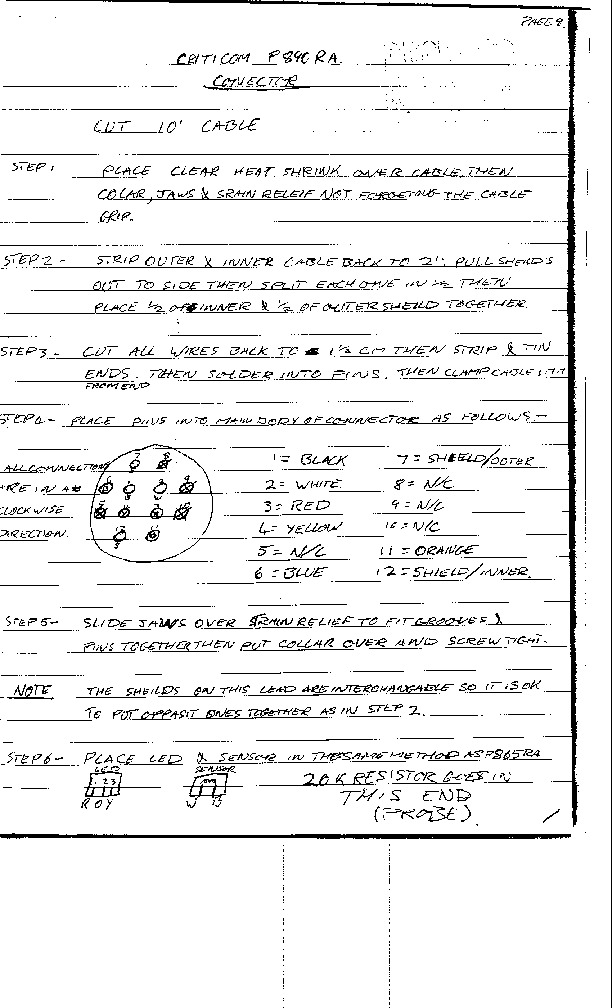 PAGE 9.
CRITICOM P890RA
CONECTOR
CUT 10' CABLE
STEP 1 PLACE CLEAR HEAT SHRINK OVER CABLE THEN
COLAR, JAWS & SRAIN RELEIF NOT FORGETING THE CABLE
GRIP.
STEP 2 - STRIP OUTER & INNER CABLE BACK TO 2". PULL SHEILDS
OUT TO SIDE THEN SPLIT EACH ONE IN 1/2 THEN
PLACE 1/2 OF INNER & 1/2 OF OUTER SHEILD TOGETHER
STEP 3 - CUT ALL WIRES BACK TO 1 1/2 CM THEN STRIP & TIN
ENDS. THEN SOLDER INTO PINS. THEN CLAMP CABLE
FROM END
STEP 4 - PLACE PINS INTO MAIN BODY OF CONNECTOR AS FOLLOWS -
ALL CONNECTIONS
ARE IN A
CLOCKWISE
DIRECTION.
1 = BLACK 7 = SHIELD/OUTER
2 = WHITE 8 = N/C
3 = RED 9 = N/C
4 = YELLOW 10 = N/C
5 = N/C 11 = ORANGE
6 = BLUE 12 = SHIELD/INNER.
STEP 5 - SLIDE JAWS OVER SRAIN RELIEF TO FIT GROOVES &
PINS TOGETHER THEN PUT COLLAR OVER AND SCREW TIGHT.
NOTE THE SHEILDS ON THIS LEAD ARE INTERCHANGABLE SO IT IS OK
TO PUT OPPASIT ONES TOGETHER AS IN STEP 2.
STEP 6 - PLACE LED & SENSOR IN THE SAME METHOD AS P865RA
LED SENSOR
1 2 3
R O Y W B
20K RESISTOR GOES IN
THIS END
(PROBE)